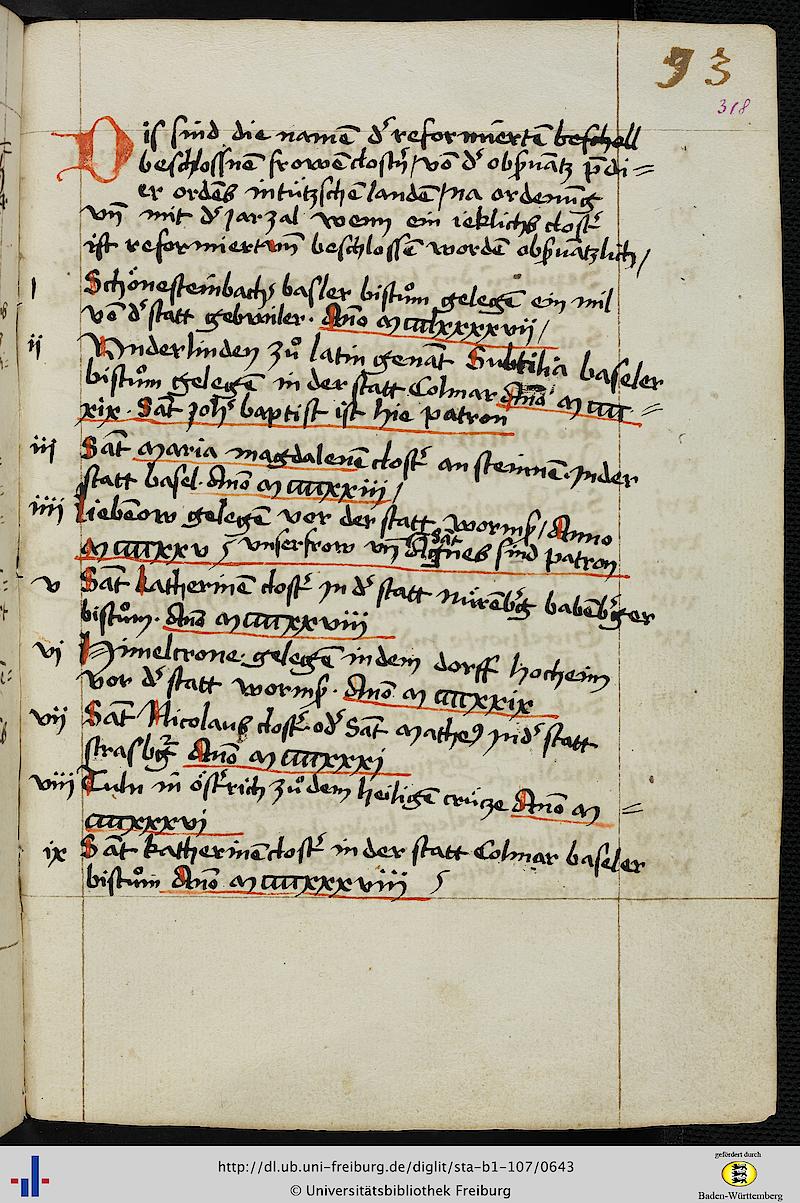 93
318
Dis sind die namē dʳ reformiertē beschell
beschlossnē frowēclostʳ / vō dʳ obsʳuātz p̄di=
er ordēs in tützschē landē / na ordenūg
vn̄ mit dʳ Jarzal wenn ein ieklichs clostʳ
ist reformiert vn̄ beschlossē wordē obsʳuātzlich /
i Schönesteinbach basler bistům gelegē ein mil
vō dʳ statt gebwiler. Āno M cccclxxxxvii /
ii Vnderlinden zů latin genāt Subtilia baseler
bistům gelegē in der statt Colmar Āno M cccc =
xix. Sāt Johˢ baptist ist hie patron
iii Sāt maria magdalenē clostʳ an steinnē. In der
statt basel. Āno M ccccxxiii /
iiii Liebēow gelegē vor der statt wormß / Anno
M ccccxxv unser frow vn̄ sāt Agnes sind patron
v Sāt katherinē clostʳ In dʳ statt nürēbʳg babēbʳger
bistům. Āno M ccccxxviii
vi Himelcrone. gelegē in dem dorff hocheim
vor dʳ statt wormß. Āno M ccccxxix
vii Sāt Nicolaus clostʳ. odʳ Sāt Matheꝰ In dʳ statt
strasbʳg Āno M ccccxxxi
viii Tuln in östʳrich zů dem heiligē crüze Āno M =
ccccxxxvi
ix Sāt katherinē clostʳ in der statt Colmar baseler
bistům Āno M ccccxxxviii
http://dl.ub.uni-freiburg.de/diglit/sta-b1-107/0643
© Universitätsbibliothek Freiburg
gefördert durch
Baden-Württemberg